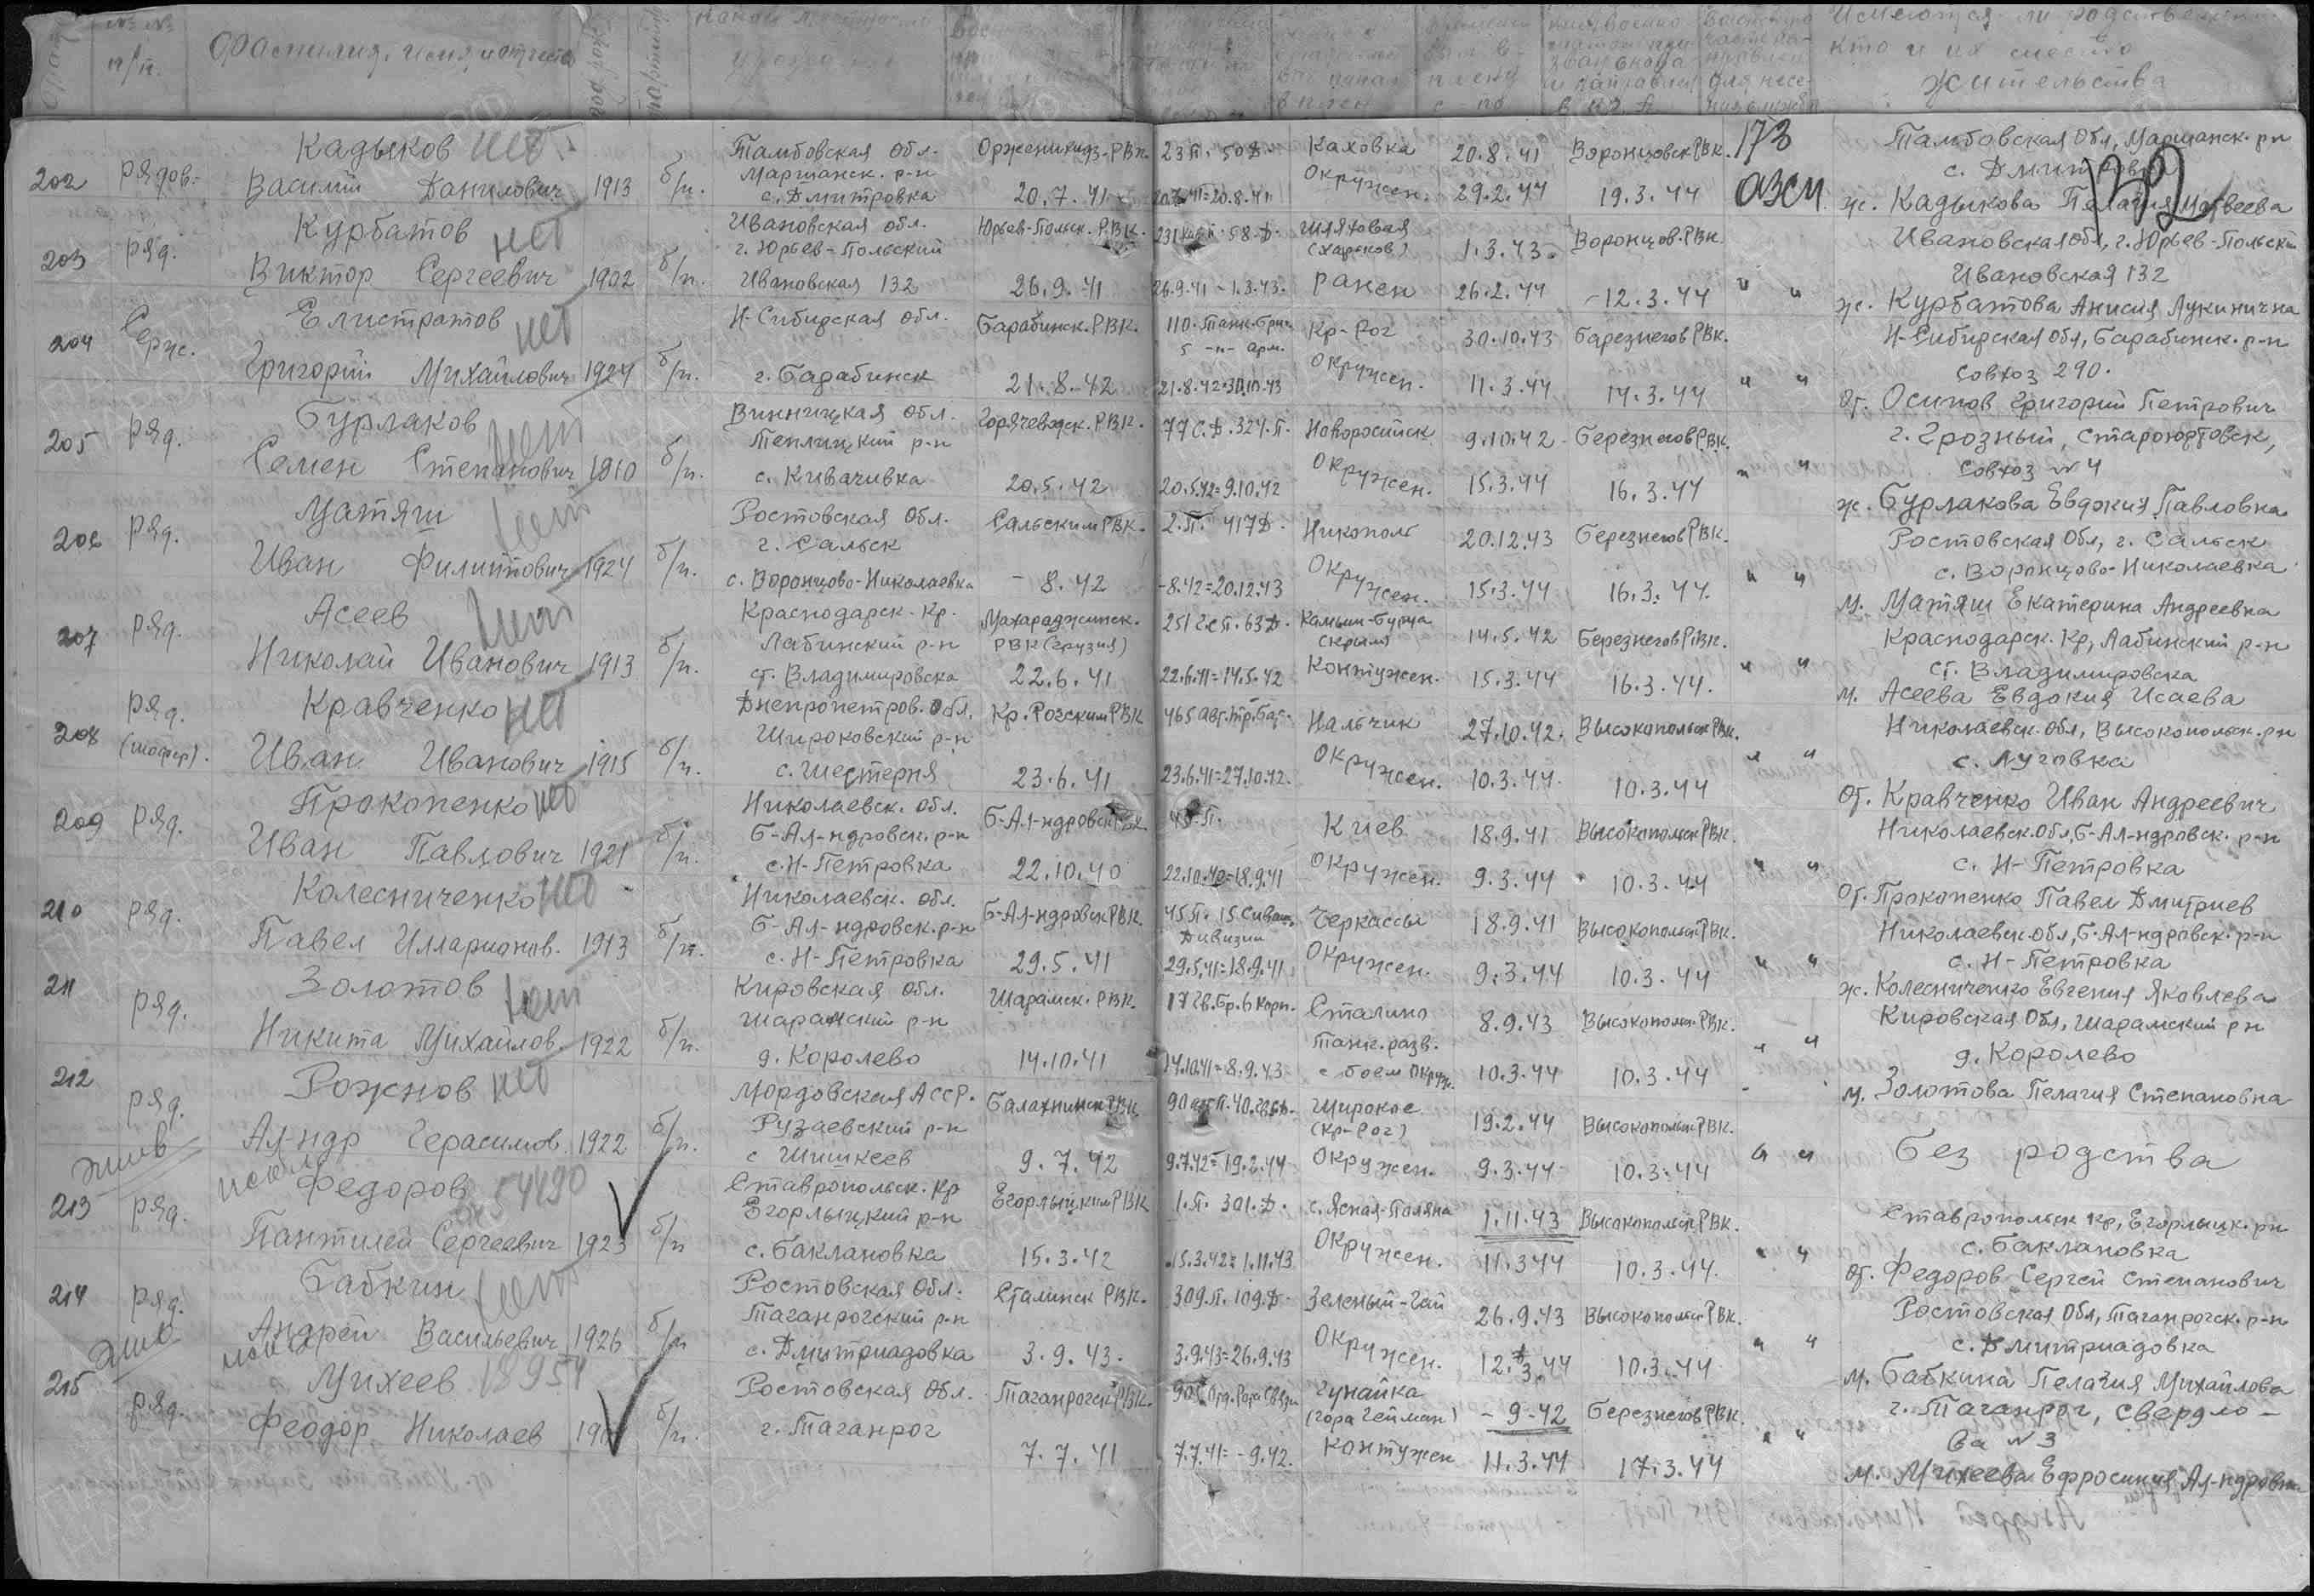 № № п/п. Фамилия, имя и отчество год рожд. Имеются ли родственники
кто и их место
жительства
202 рядов. Кадыков нет
Василий Данилович 1913 б/п. Тамбовская обл. Моршанск. р-н с. Дмитровка
Орженикидз. РВК. 20.7.41 23 п. 50 д. 20.7.41=20.8.41
Каховка Окружен. 20.8.41 29.2.44 Воронцовск РВК. 19.3.44 173 азсп.
Тамбовская Обл, Моршанск. р-н
с. Дмитровка 192
ж. Кадыкова Пелагия Матвеева
203 ряд. Курбатов нет
Виктор Сергеевич 1902 б/п. Ивановская обл. г. Юрьев-Польский Ивановская 132
Юрьев-Польск. РВК. 26.9.41 58 д. 26.9.41 - 1.3.43.
(Харьков) ранен 1.3.43. 26.2.44 Воронцов. РВК. -12.3.44 " "
Ивановская Обл, г. Юрьев-Польский
Ивановская 132
ж. Курбатова Анисия Лукинична
204 Серж. Елистратов нет
Григорий Михайлович 1924 б/п. Н-Сибирская обл. г. Барабинск
Барабинск. РВК. 21.8.42 110. Танк. Бриг. 5 -"- Арм. 21.8.42=30.10.43
Кр-Рог Окружен. 30.10.43 11.3.44 Березнегов РВК. 14.3.44 " "
Н-Сибирская Обл, Барабинск. р-н
Совхоз 290.
От. Осипов Григорий Петрович
205 ряд. Бурлаков нет
Семен Степанович 1910 б/п. Винницкая обл. Теплицкий р-н с. Кивачивка
Горячеводск. РВК. 20.5.42 77 с. д. 324. п. 20.5.42=9.10.42
Новоросийск Окружен. 9.10.42 15.3.44 Березнегов РВК. 16.3.44 " "
г. Грозный, Староюртовск,
Совхоз № 4
ж. Бурлакова Евдокия Павловна
206 ряд. Матяш нет
Иван Филиппович 1924 б/п. Ростовская обл. г. Сальск с. Воронцово-Николаевка
Сальским РВК. - 8.42 2. п. 417 д. -8.42=20.12.43
Никополь Окружен. 20.12.43 15.3.44 Березнегов РВК. 16.3.44. " "
Ростовская Обл, г. Сальск
с. Воронцово-Николаевка
м. Матяш Екатерина Андреевна
207 ряд. Асеев нет
Николай Иванович 1913 б/п. Краснодарск. Кр. Лабинский р-н ст. Владимировска
Махараджинск. РВК (Грузия) 22.6.41 251 63 д. 22.6.41=14.5.42
Контужен. 14.5.42 15.3.44 Березнегов РВК. 16.3.44. " "
Краснодарск. Кр, Лабинский р-н
ст. Владимировска
м. Асеева Евдокия Исаева
208 ряд. (шофер). Кравченко нет
Иван Иванович 1915 б/п. Днепропетров. Обл. Широковский р-н с. Шестерня
Кр. Рогским РВК 23.6.41 465 23.6.41=27.10.42.
Нальчик Окружен. 27.10.42. 10.3.44. Высокопольск РВК. 10.3.44 " "
Николаевск. Обл, Высокопольск. р-н
с. Луговка
От. Кравченко Иван Андреевич
209 ряд. Прокопенко нет
Иван Павлович 1921 б/п. Николаевск. обл. Б-Ал-ндровск. р-н с. Н-Петровка
Б-Ал-ндровск РВК 22.10.40 22.10.40=18.9.41
Киев Окружен. 18.9.41 9.3.44 Высокопольск РВК. 10.3.44 " "
Николаевск. Обл, Б-Ал-ндровск. р-н
с. Н-Петровка
От. Прокопенко Павел Дмитриев
210 ряд. Колесниченко нет
Павел Илларионов. 1913 б/п. Николаевск. обл. Б-Ал-ндровск. р-н с. Н-Петровка
Б-Ал-ндровск РВК. 29.5.41 45 п. 15 Сиваш. Дивизии 29.5.41=18.9.41
Черкассы Окружен. 18.9.41 9.3.44 Высокопольск РВК. 10.3.44 " "
Николаевск. обл, Б-Ал-ндровск. р-н
с. Н-Петровка
ж. Колесниченко Евгения Яковлева
211 ряд. Золотов нет
Никита Михайлов. 1922 б/п. Кировская обл. Шарамский р-н д. Королево
Шарамск. РВК. 14.10.41 17 Гв. Бр. 6 Корп. 14.10.41=8.9.43
Сталино Танк. разв. с боем Окруж. 8.9.43 10.3.44 Высокопольск РВК. 10.3.44 " "
Кировская Обл, Шарамский р-н
д. Королево
м. Золотова Пелагия Степановна
212 ряд. Рожнов нет
Ал-ндр Герасимов. 1922 б/п. Мордовская АССР. Рузаевский р-н с Шишкеев
Балахнинск РВК 9.7.42 9.7.42=19.2.44
Широкое (Кр-Рог) Окружен. 19.2.44 9.3.44 Высокопольск РВК. 10.3.44 " "
Без родства
жив
213 ряд. Федоров 54490
Пантилей Сергеевич 1923 б/п Ставропольск. Кр Егорлыцкий р-н с. Баклановка
Егорлыцким РВК 15.3.42 1. п. 301. д. 15.3.42=1.11.43
с. Ясная-Поляна Окружен. 1.11.43 11.3.44 Высокопольск РВК. 10.3.44. " "
Ставропольск Кр, Егорлыцк. р-н
с. Баклановка
От. Федоров Сергей Степанович
214 ряд. Бабкин нет
Андрей Васильевич 1926 б/п Ростовская Обл. Таганрогский р-н с. Дмитриадовка
Сталинск РВК. 3.9.43. 309. п. 109. д. 3.9.43=26.9.43
Зеленый-Гай Окружен. 26.9.43 12.3.44 Высокопольск РВК. 10.3.44 " "
Ростовская Обл, Таганрогск. р-н
с. Дмитриадовка
м. Бабкина Пелагия Михайлова
жив
215 ряд. Михеев 18954
Феодор Николаев б/п. Ростовская Обл. г. Таганрог
Таганрогск РВК. 7.7.41 7.7.41=-9.42.
Гунайка (гора Гейман) Контужен - 9-42 11.3.44 Березнегов РВК. 17.3.44 " "
г. Таганрог, Свердло-
ва № 3
м. Михеева Ефросиния Ал-ндровна